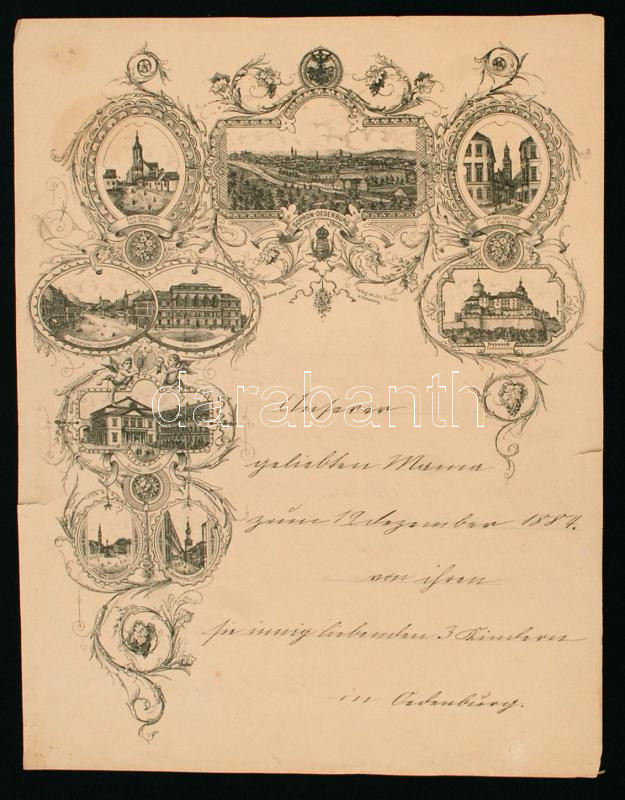 SOPRON-OEDENBURG
Casino
Unserer
geliebten Mama
zum 12 Dezember 1884.
von ihren
sie innig liebenden 3 Kindern
in Oedenburg.
darabanth